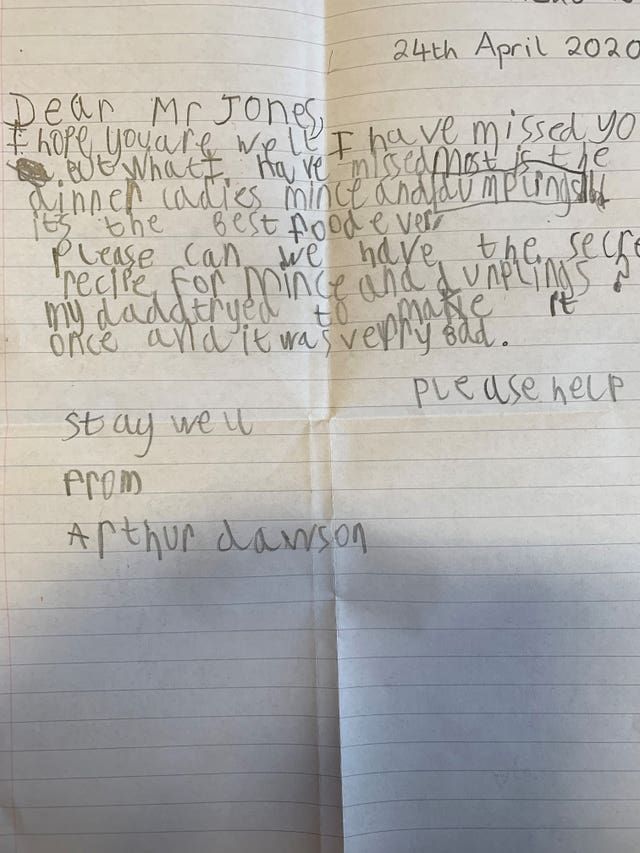 24th April 2020
Dear Mr Jones,
I hope you are well I have missed yo
. But what I have missed most is the
dinner ladies mince and dumplings
it's the best food ever
Please can we have the secre
recipe for mince and dunplings
my dadd tryed to make it
once and it was verry bad.
please help
Stay well
From
Arthur dawson